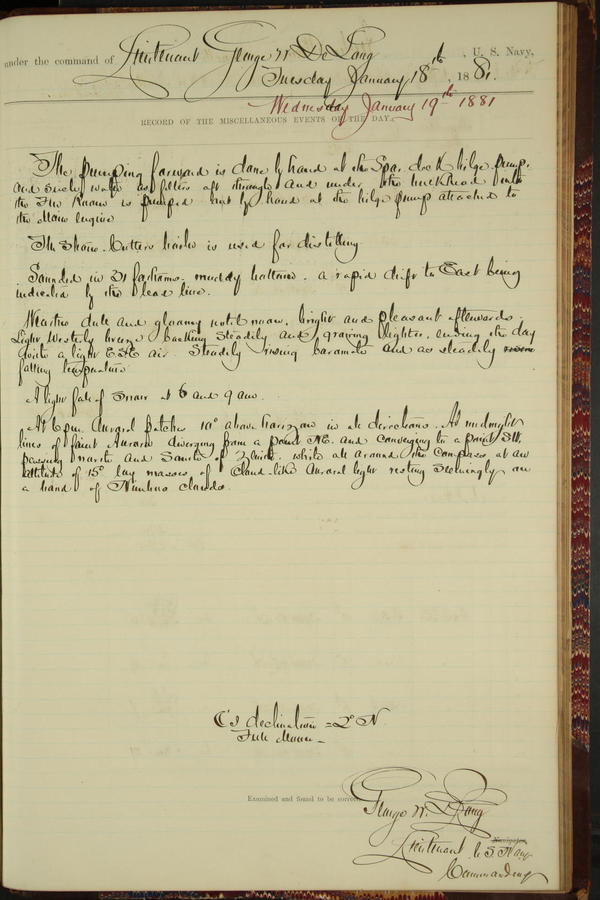 under the command of Lieutenant George W. De Long, U. S. Navy,
Tuesday January 18th, 1881.
Wednesday January 19th 1881
RECORD OF THE MISCELLANEOUS EVENTS OF THE DAY.
The pumping forward is done by hand at the Spar deck bilge pump,
and such water as filters aft through and under the bulkhead
the Fire Room is pumped out by hand at the bilge pump attached to
the Main engine
The Steam Cutters boiler is used for distilling
Sounded in 31 fathoms. muddy bottom. a rapid drift to East being
indicated by the lead line.
Weather dull and gloomy until noon, bright and pleasant afterwards.
Light Westerly breeze backing steadily and growing lighter, ending the day
with a light ESE air. Steadily rising barometer and as steadily
falling temperature
A light fall of Snow at 6 and 9 am.
At 6 pm. Auroral patches 10° above horizon in all directions. At midnight
lines of faint Aurora diverging from a point NE. and converging to a point SW.
passing North and South of Zenith, while all around the Compass at an
altitude of 15° lay masses of Cloud-like Auroral light resting seemingly on
a band of Nimbus clouds.
declination = 2° N
Full Moon
Examined and found to be correct.
George W. De Long
Navigator.
Lieutenant U. S. Navy
Commanding